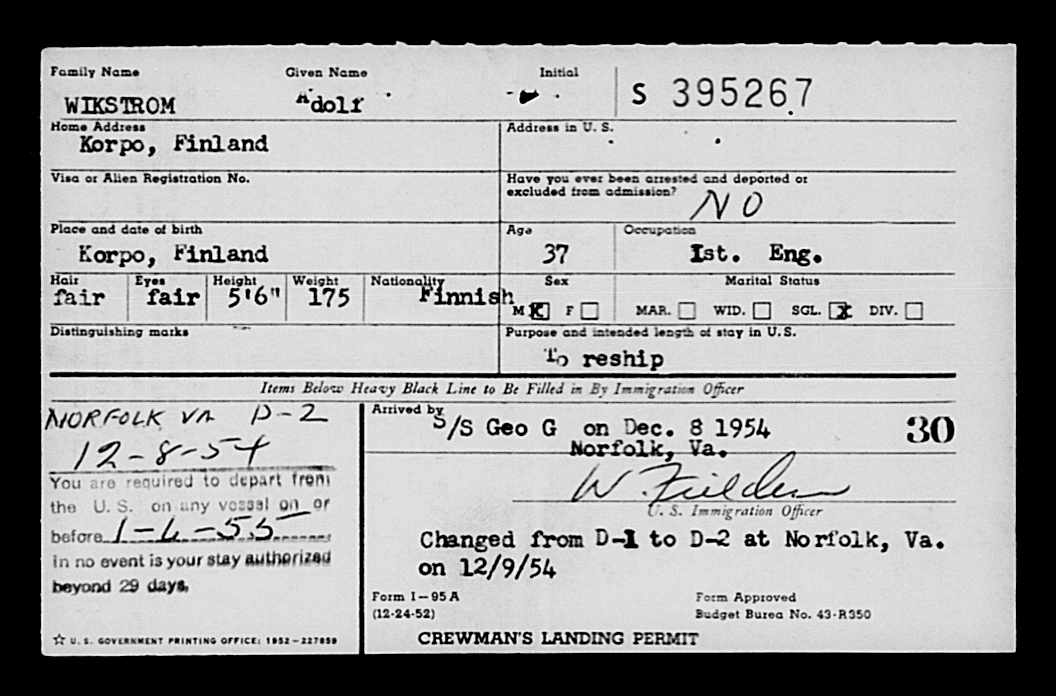 Family Name Given Name Initial
WIKSTROM Adolf S 395267
Home Address Address in U. S.
Korpo, Finland
Visa or Alien Registration No. Have you ever been arrested and deported or
excluded from admission?
NO
Place and date of birth Age Occupation
Korpo, Finland 37 Ist. Eng.
Hair Eyes Height Weight Nationality Sex Marital Status
fair fair 5'6" 175 Finnish
M X F MAR. WID. SGL. X DIV.
Distinguishing marks Purpose and intended length of stay in U.S.
To reship
Items Below Heavy Black Line to Be Filled in By Immigration Officer
NORFOLK VA D-2
12-8-54
You are required to depart from
the U. S. on any vessel on or
before 1-6-55
in no event is your stay authorized
beyond 29 days.
☆ U. S. GOVERNMENT PRINTING OFFICE: 1952-227859
Arrived by
S/S Geo G on Dec. 8 1954 30
Norfolk, Va.
W. Fielder
U. S. Immigration Officer
Changed from D-1 to D-2 at Norfolk, Va.
on 12/9/54
Form I-95A Form Approved
(12-24-52) Budget Burea No. 43-R350
CREWMAN'S LANDING PERMIT